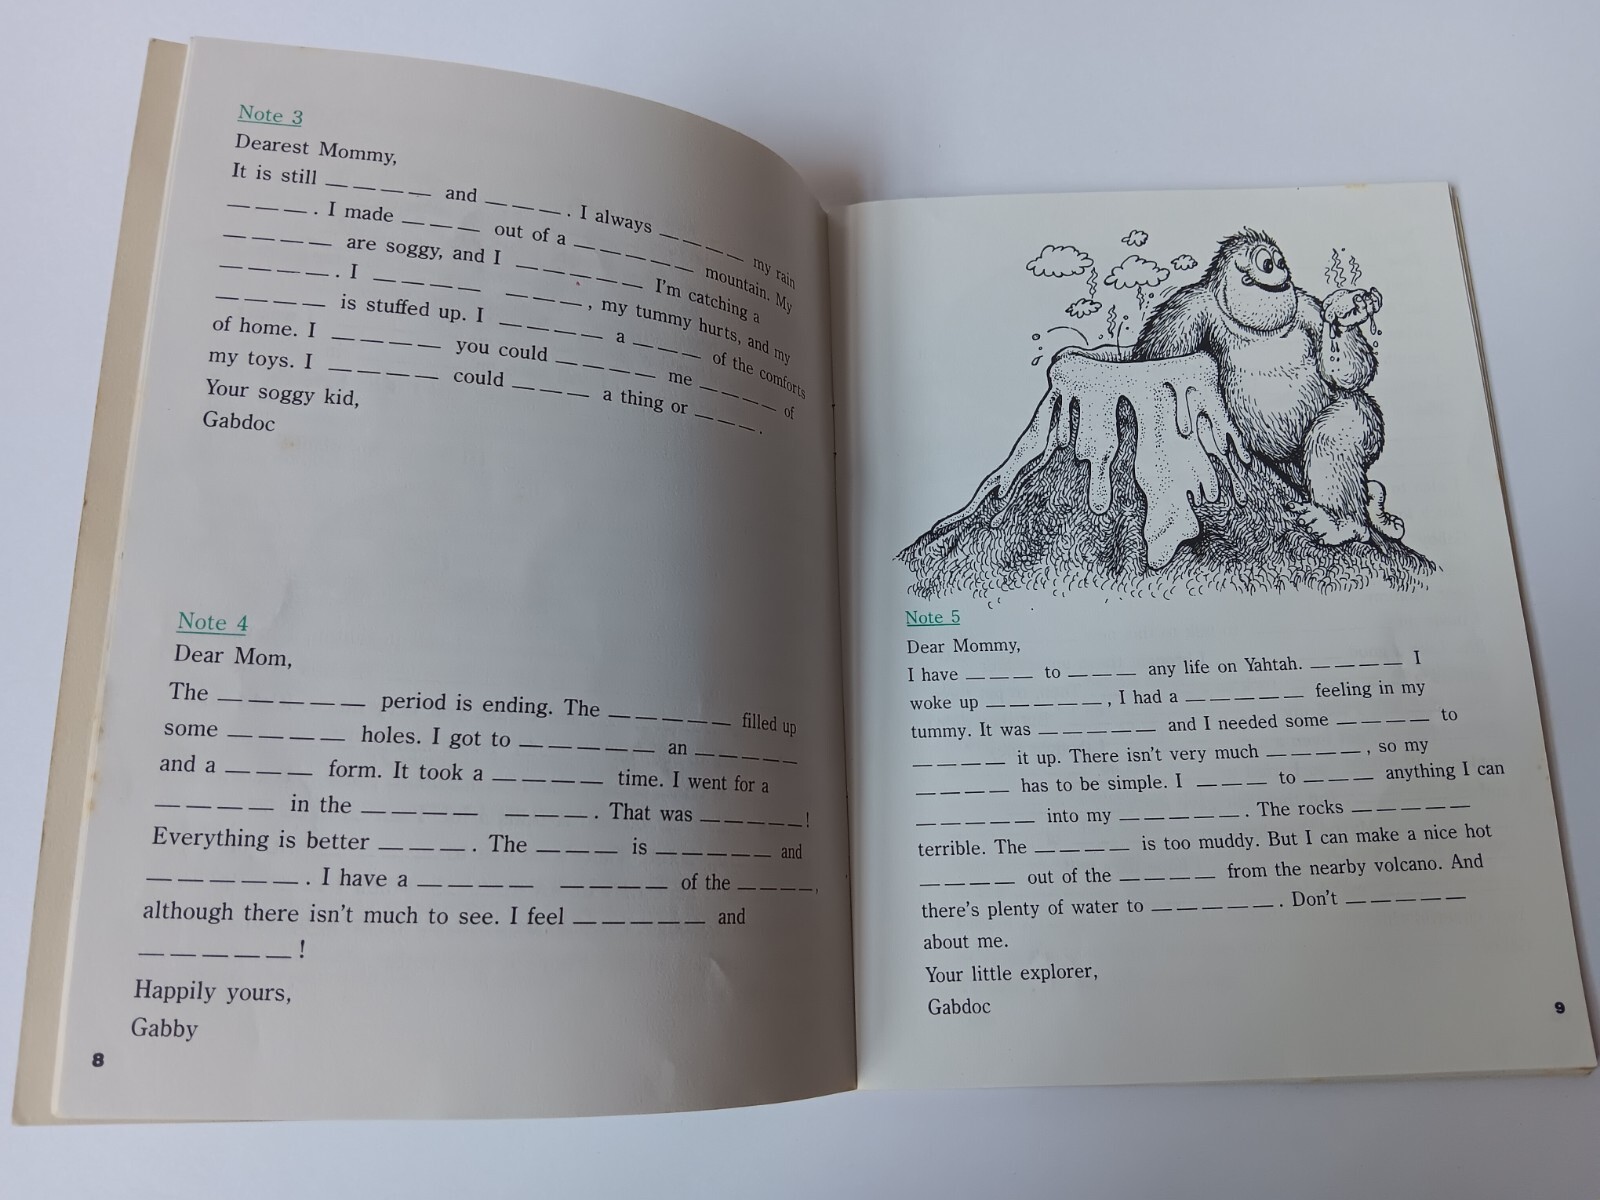 Note 3
Dearest Mommy,
It is still _ _ _ _ and _ _ _. I always _ _ _ _ my rain
_ _ _. I made _ _ _ out of a _ _ _ _ _ mountain. My
_ _ _ _ are soggy, and I _ _ _ _ _ I'm catching a
_ _ _ _. I _ _ _ _ _ _ _, my tummy hurts, and my
_ _ _ _ is stuffed up. I _ _ _ _ a _ _ _ of the comforts
of home. I _ _ _ _ you could _ _ _ _ _ me _ _ _ _ of
my toys. I _ _ _ _ could _ _ _ a thing or _ _ _.
Your soggy kid,
Gabdoc
Note 4
Dear Mom,
The _ _ _ _ _ period is ending. The _ _ _ _ _ filled up
some _ _ _ _ holes. I got to _ _ _ _ _ an _ _ _ _
and a _ _ _ form. It took a _ _ _ _ time. I went for a
_ _ _ _ in the _ _ _ _ _ _ _. That was _ _ _ _ _!
Everything is better _ _ _. The _ _ _ is _ _ _ _ _ and
_ _ _ _ _ _. I have a _ _ _ _ _ _ _ _ of the _ _ _ _,
although there isn't much to see. I feel _ _ _ _ _ and
_ _ _ _ _ _!
Happily yours,
Gabby
8
Note 5
Dear Mommy,
I have _ _ _ to _ _ _ any life on Yahtah. _ _ _ _ I
woke up _ _ _ _ _, I had a _ _ _ _ _ feeling in my
tummy. It was _ _ _ _ _ and I needed some _ _ _ _ to
_ _ _ _ it up. There isn't very much _ _ _ _, so my
_ _ _ _ has to be simple. I _ _ _ to _ _ _ anything I can
_ _ _ _ _ into my _ _ _ _ _. The rocks _ _ _ _ _
terrible. The _ _ _ _ is too muddy. But I can make a nice hot
_ _ _ _ out of the _ _ _ _ from the nearby volcano. And
there's plenty of water to _ _ _ _ _. Don't _ _ _ _ _
about me.
Your little explorer,
Gabdoc
9